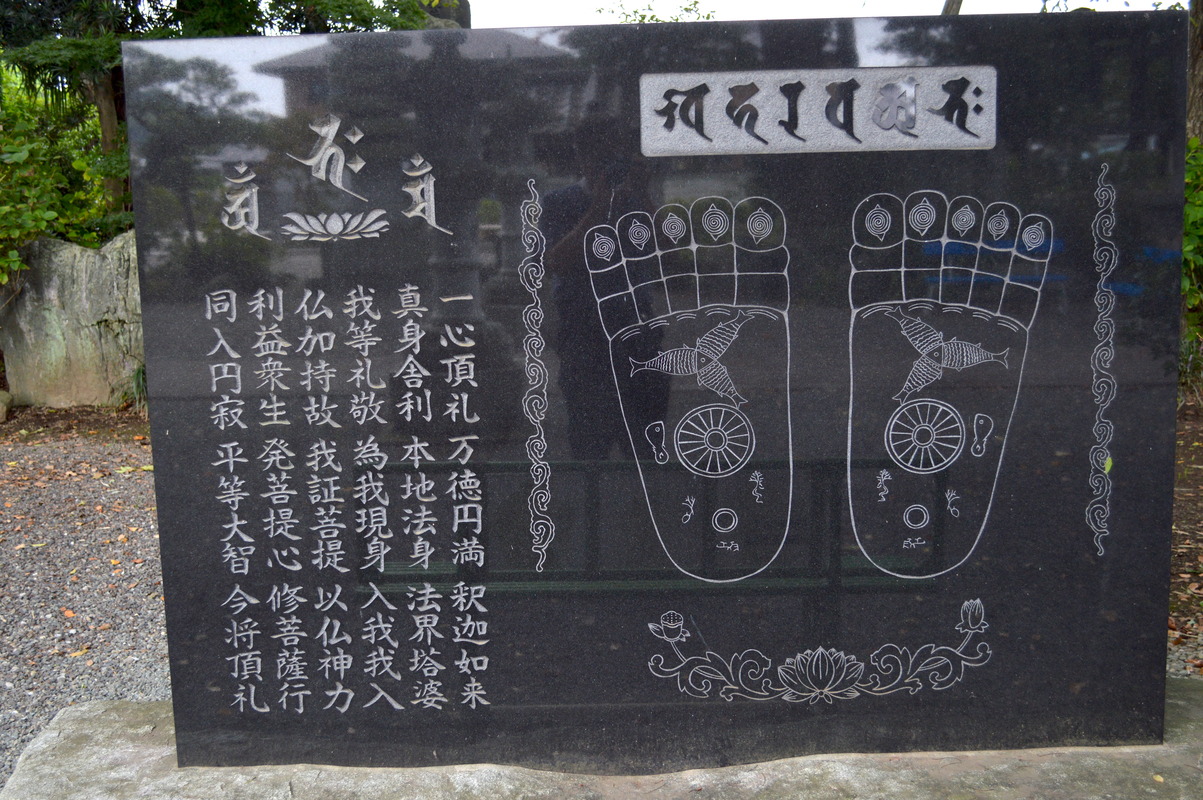 一心頂礼 万徳円満 釈迦如来
真身舎利 本地法身 法界塔婆
我等礼敬 為我現身 入我我入
仏加持故 我証菩提 以仏神力
利益衆生 発菩提心 修菩薩行
同入円寂 平等大智 今将頂礼